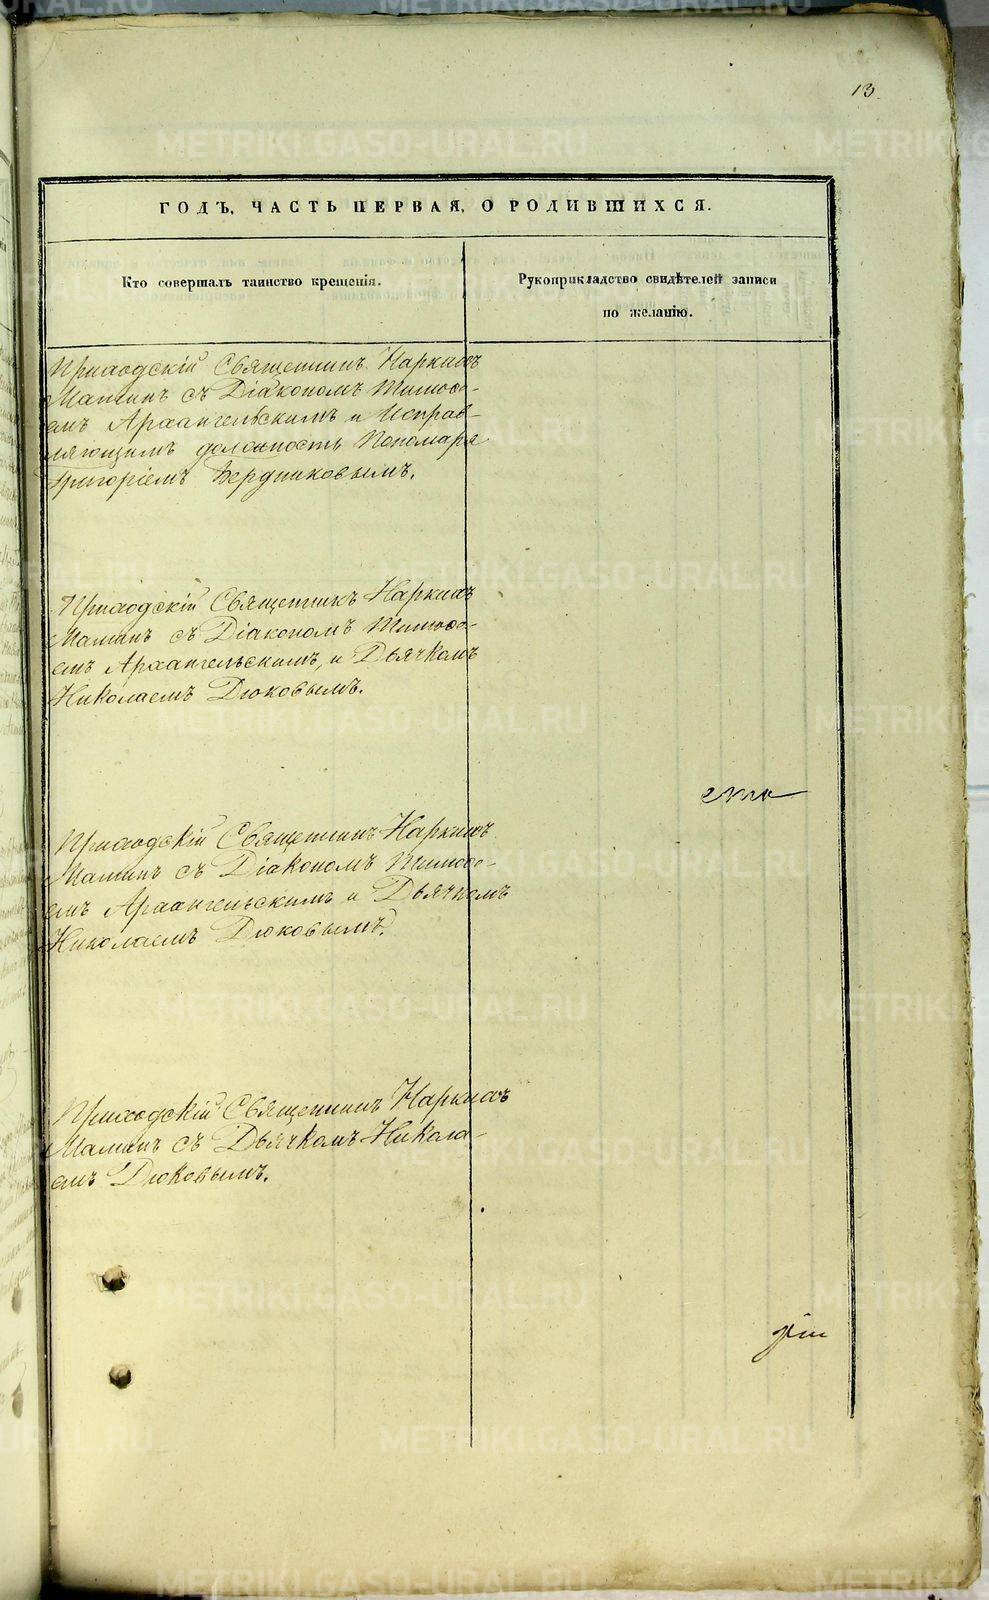 13.
ГОДЪ, ЧАСТЬ ПЕРВАЯ, О РОДИВШИХСЯ.
Кто совершалъ таинство крещенія.
Рукоприкладство свидѣтелей записи
по желанію.
Приходскій Священникъ Наркиссъ
Маминъ съ Діакономъ Тимоѳе-
емъ Архангельскимъ и Исправ-
ляющимъ должность Пономаря
Григоріемъ Бердниковымъ.
Приходскій Священникъ Наркиссъ
Маминъ съ Діакономъ Тимоѳе-
емъ Архангельскимъ, и Дьячкомъ
Николаемъ Дюковымъ.
Приходскій Священникъ Наркиссъ
Маминъ съ Діакономъ Тимоѳе-
емъ Архангельскимъ и Дьячкомъ
Николаемъ Дюковымъ.
Приходскій Священникъ Наркиссъ
Маминъ съ Дьячкомъ Никола-
емъ Дюковымъ.
METRIKI.GASO-URAL.RU